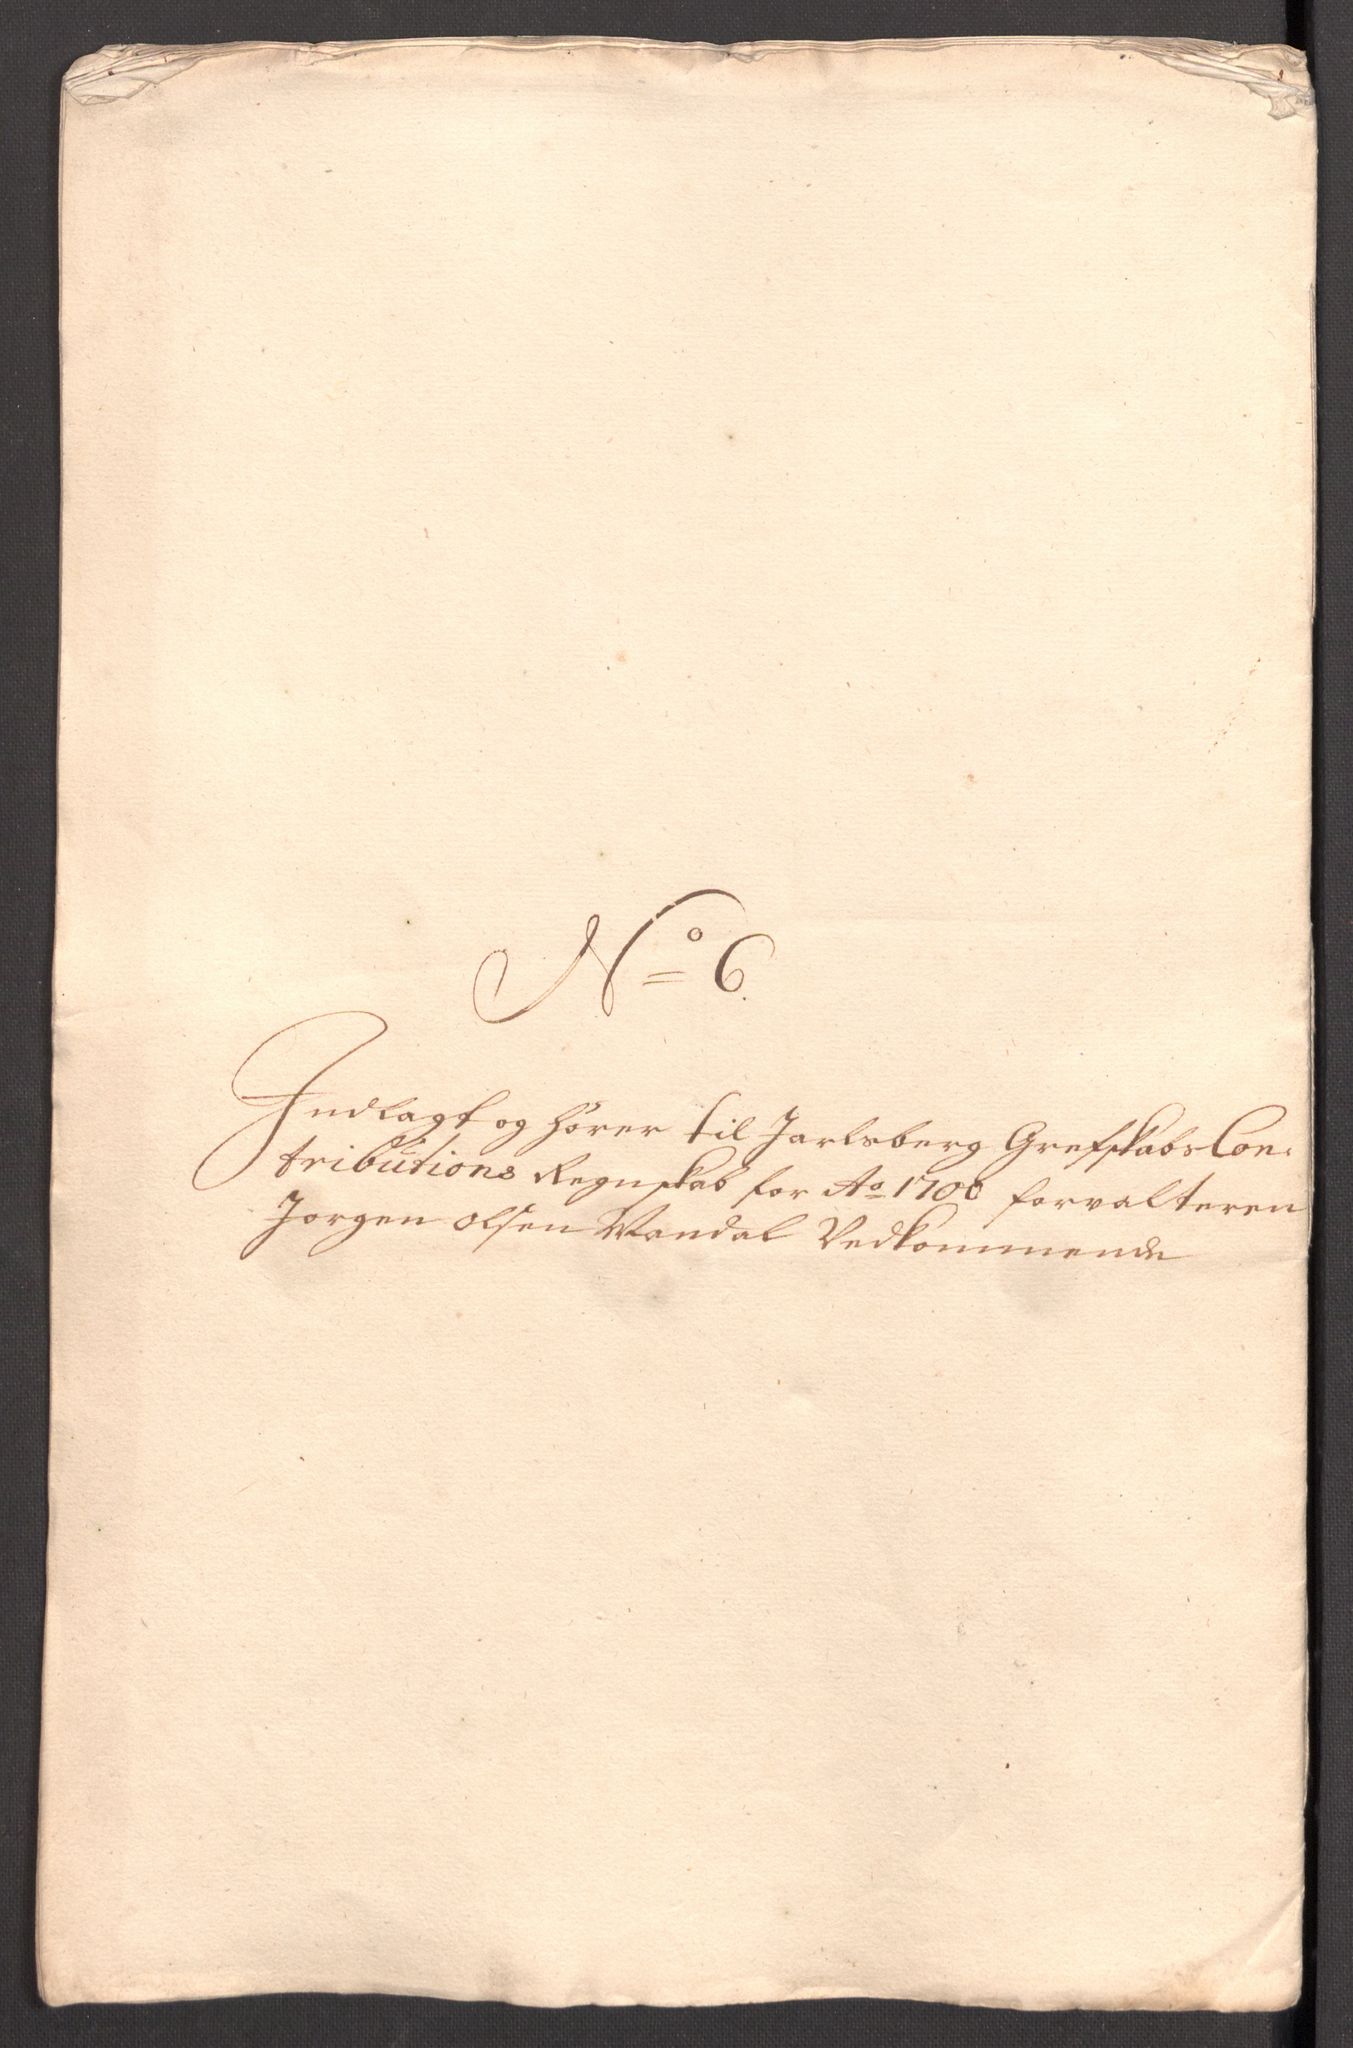 No 6.
Indlagt og hörer til Jarlsberg Grefskabs Con-
tributions Regnskab for Ao 1700 forvalteren
Jorgen olsen Mandal Vedkommende